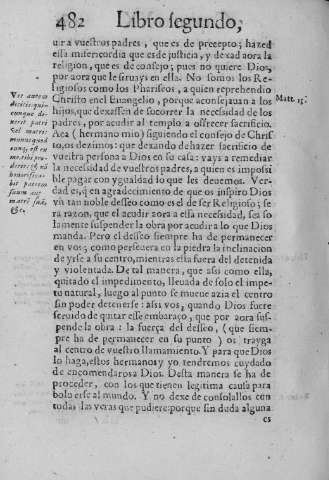 482 Libro segundo,
uir a vuestros padres, que es de precepto; hazed
essa misericordia que es de justicia, y dexad aora la
religion, que es de consejo; pues no quiere Dios,
por aora que le siruays en ella. No somos los Re-
ligiosos como los Phariseos, a quien reprehendio
Christo en el Euangelio, porque aconsejauan a los
hijos, que dexassen de socorrer la necessidad de los
padres, por acudir al templo a offrecer sacrificio.
Aca (hermano mio) siguiendo el consejo de Chris
to, os dezimos: que dexando de hazer sacrificio de
vuestra persona a Dios en su casa: vays a remediar
la necessidad de vuestros padres, a quien es imposi
ble pagar con ygualdad lo que les deuemos. Ver-
dad es, en agradecimiento de que os inspiro Dios
vn tan noble desseo como es el de ser Religioso; se
ra razon, que el acudir aora a essa necessidad, sea so
lamente suspender la obra por acudir a lo que Dios
manda. Pero el desseo siempre ha de permanecer
en vos; como perseuera en la piedra la inclinacion
de yrse a su centro, mientras esta fuera del detenida
y violentada. De tal manera, que assi como ella,
quitado el impedimento, lleuada de solo el impe-
tu natural, luego al punto se mueue azia el centro
sin poder detenerse: assi vos, quando Dios fuere
seruido de quitar esse embaraço, que por aora sus-
pende la obra: la fuerça del desseo, (que siem-
pre ha de permanecer en su punto) os trayga
al centro de vuestro llamamiento. Y para que Dios
lo haga, estos hermanos y yo tendremos cuydado
de encomendaros a Dios. Desta manera se ha de
proceder, con los que tienen legitima causa para
boluerse al mundo. Y no dexe de consolallos con
todas las veras que pudiere: porque sin duda alguna
es
Matt. 15.
Ver autem
dicitis: qui-
cunque di-
xerit patri
vel matri:
munus quod
cunq; est ex
me, tibi pro-
derit: & nõ
honorifica-
bit patrem
suum aut
matrẽ suã,
&c.